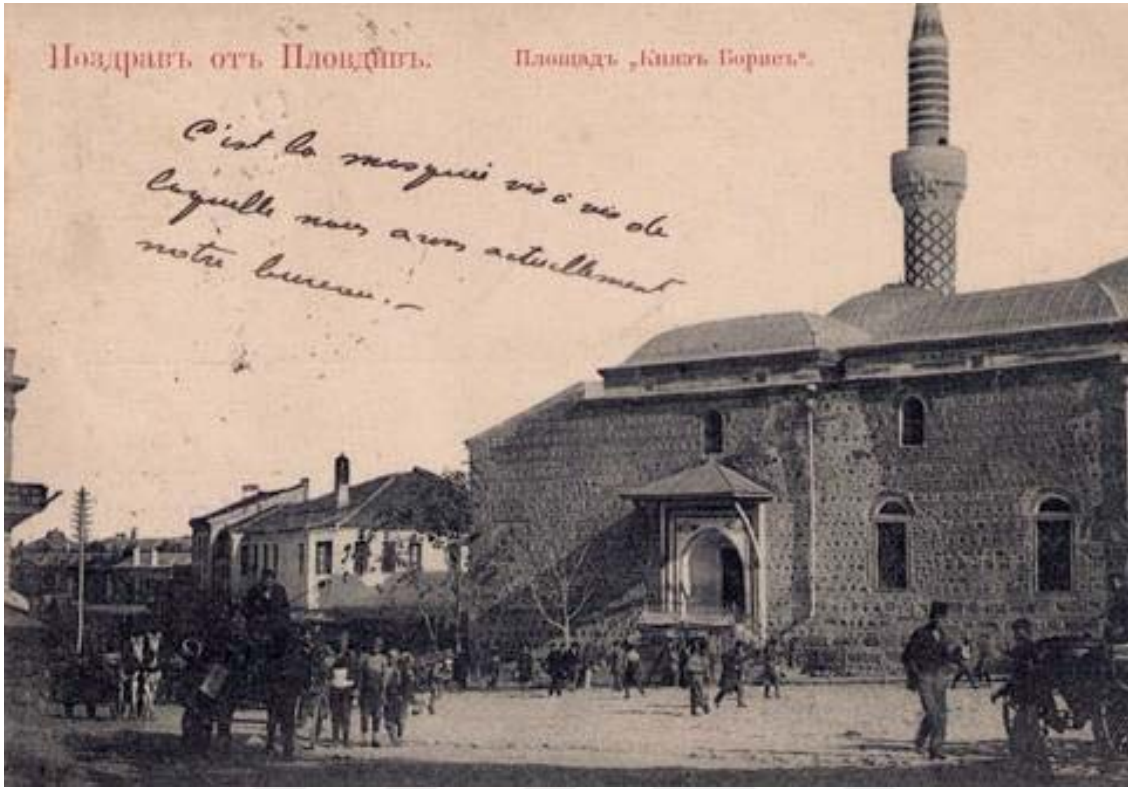 Поздравъ отъ Пловдивъ.
Площадъ „Князъ Борисъ“.
C'est la mosquée vis à vis de
laquelle nous avons actuellement
notre bureau.–